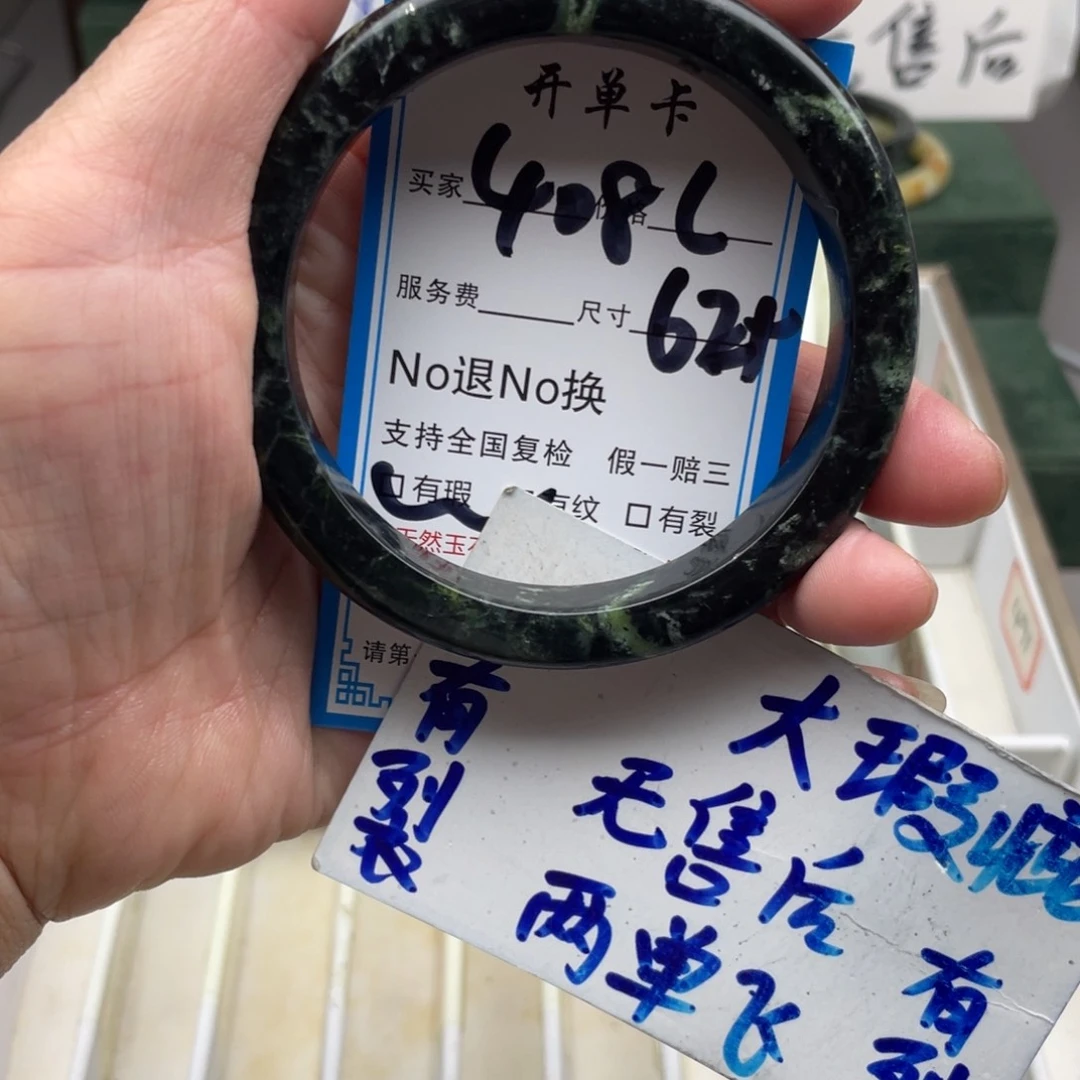 售后
开单卡
买家 408 价格 L
服务费 尺寸 62+
No退No换
支持全国复检 假一赔三
口有瑕 有纹 口有裂
天然玉石
请第
有裂
大瑕疵
无售后
两单飞
有裂